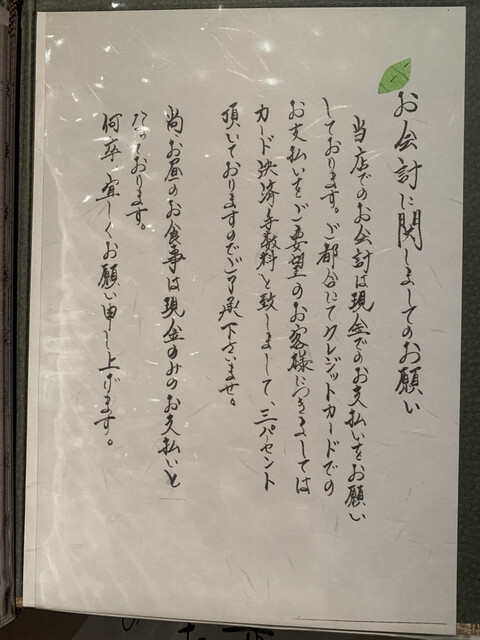 お会計に関しましてのお願い
当店でのお会計は現金でのお支払いをお願い
しております。ご都合にてクレジットカードでの
お支払いをご要望のお客様につきましては
カード決済手数料と致しまして、三パーセント
頂いておりますのでご了承下さいませ。
尚お昼のお食事は現金のみのお支払いと
なっております。
何卒宜しくお願い申し上げます。